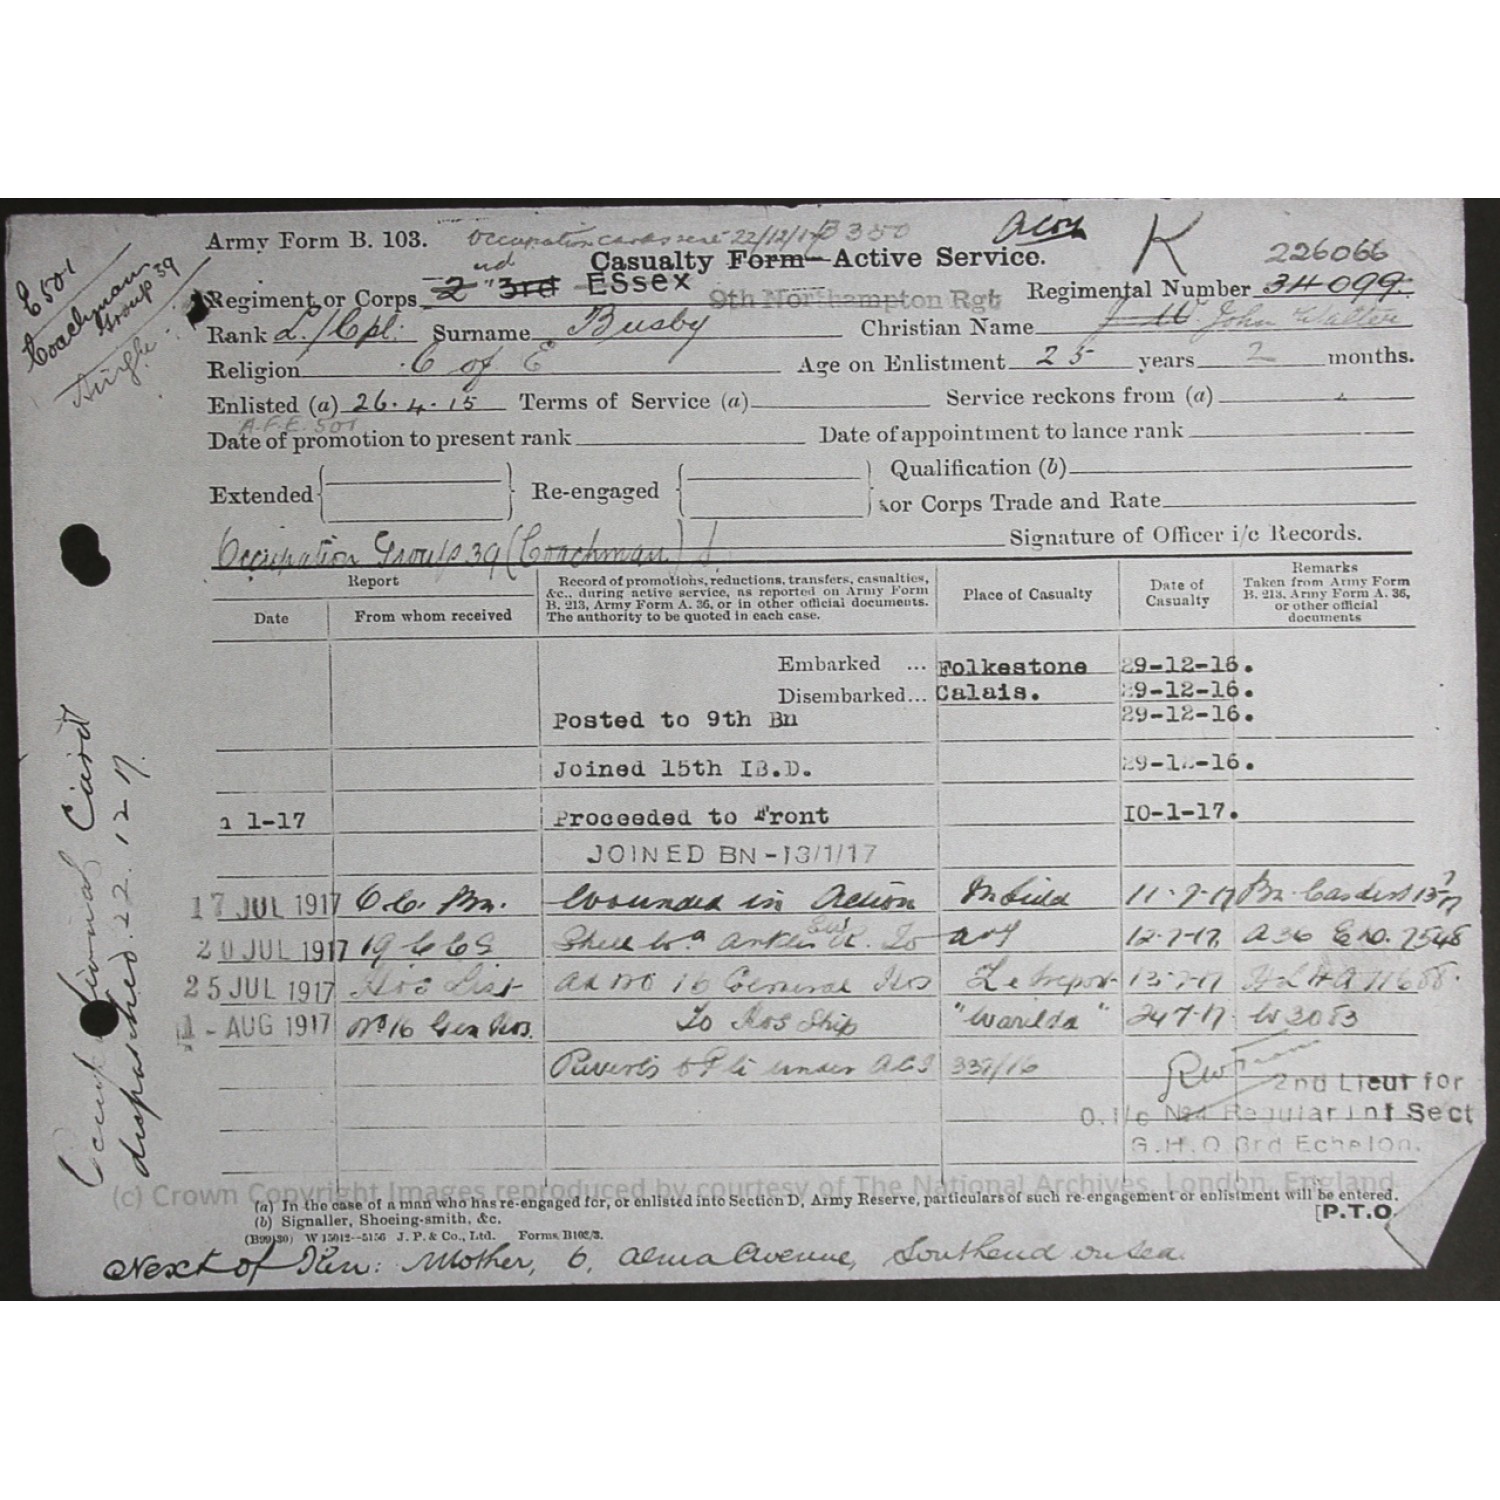 Army Form B. 103.
Occupation cards sent 22/12/17 B 350
K
226066
Casualty Form—Active Service.
Regiment or Corps 2nd 3rd ESSex 9th Northampton Rgt Regimental Number 34099
Rank L/Cpl. Surname Busby Christian Name J W John Walter
Religion C of E Age on Enlistment 25 years 2 months.
Enlisted (a) 26.4.15 Terms of Service (a) Service reckons from (a)
A.F.E. 501
Date of promotion to present rank Date of appointment to lance rank
Extended Re-engaged Qualification (b)
or Corps Trade and Rate
Occupation Group 39 (Coachman) Signature of Officer i/c Records.
E501
Coachman
Group 39
Single
Report
Date From whom received
Record of promotions, reductions, transfers, casualties, &c., during active service, as reported on Army Form B. 213, Army Form A. 36, or in other official documents. The authority to be quoted in each case.
Place of Casualty
Date of Casualty
Remarks
Taken from Army Form B. 213, Army Form A. 36, or other official documents
Embarked ... Folkestone 29-12-16.
Disembarked... Calais. 29-12-16.
Posted to 9th Bn 29-12-16.
Joined 15th IB.D. 29-12-16.
1-17 Proceeded to Front 10-1-17.
JOINED BN - 13/1/17
17 JUL 1917 O.C. Bn. Wounded in Action In Field 11-7-17
20 JUL 1917 19 CCS Shell Wd To 12-7-17 A36
25 JUL 1917 Hos List Ad No 16 General Hos Le Treport 13-7-17
1 - AUG 1917 No 16 Gen Hos. To Hos Ship "Warilda" 24 7-17 W3083
Reverts to Pte under ACI 339/16
2nd Lieut for
O. i/c No 4 Regular Inf Sect
G.H.Q 3rd Echelon.
Occupational Card
dispatched. 22. 12 17.
(c) Crown Copyright Images reproduced by courtesy of The National Archives, London, England
(a) In the case of a man who has re-engaged for, or enlisted into Section D, Army Reserve, particulars of such re-engagement or enlistment will be entered.
(b) Signaller, Shoeing-smith, &c.
[P.T.O.
W 15012--5156 J. P. & Co., Ltd. Forms B102/3.
Next of Kin: Mother, 6, Alma Avenue, Southend on Sea.